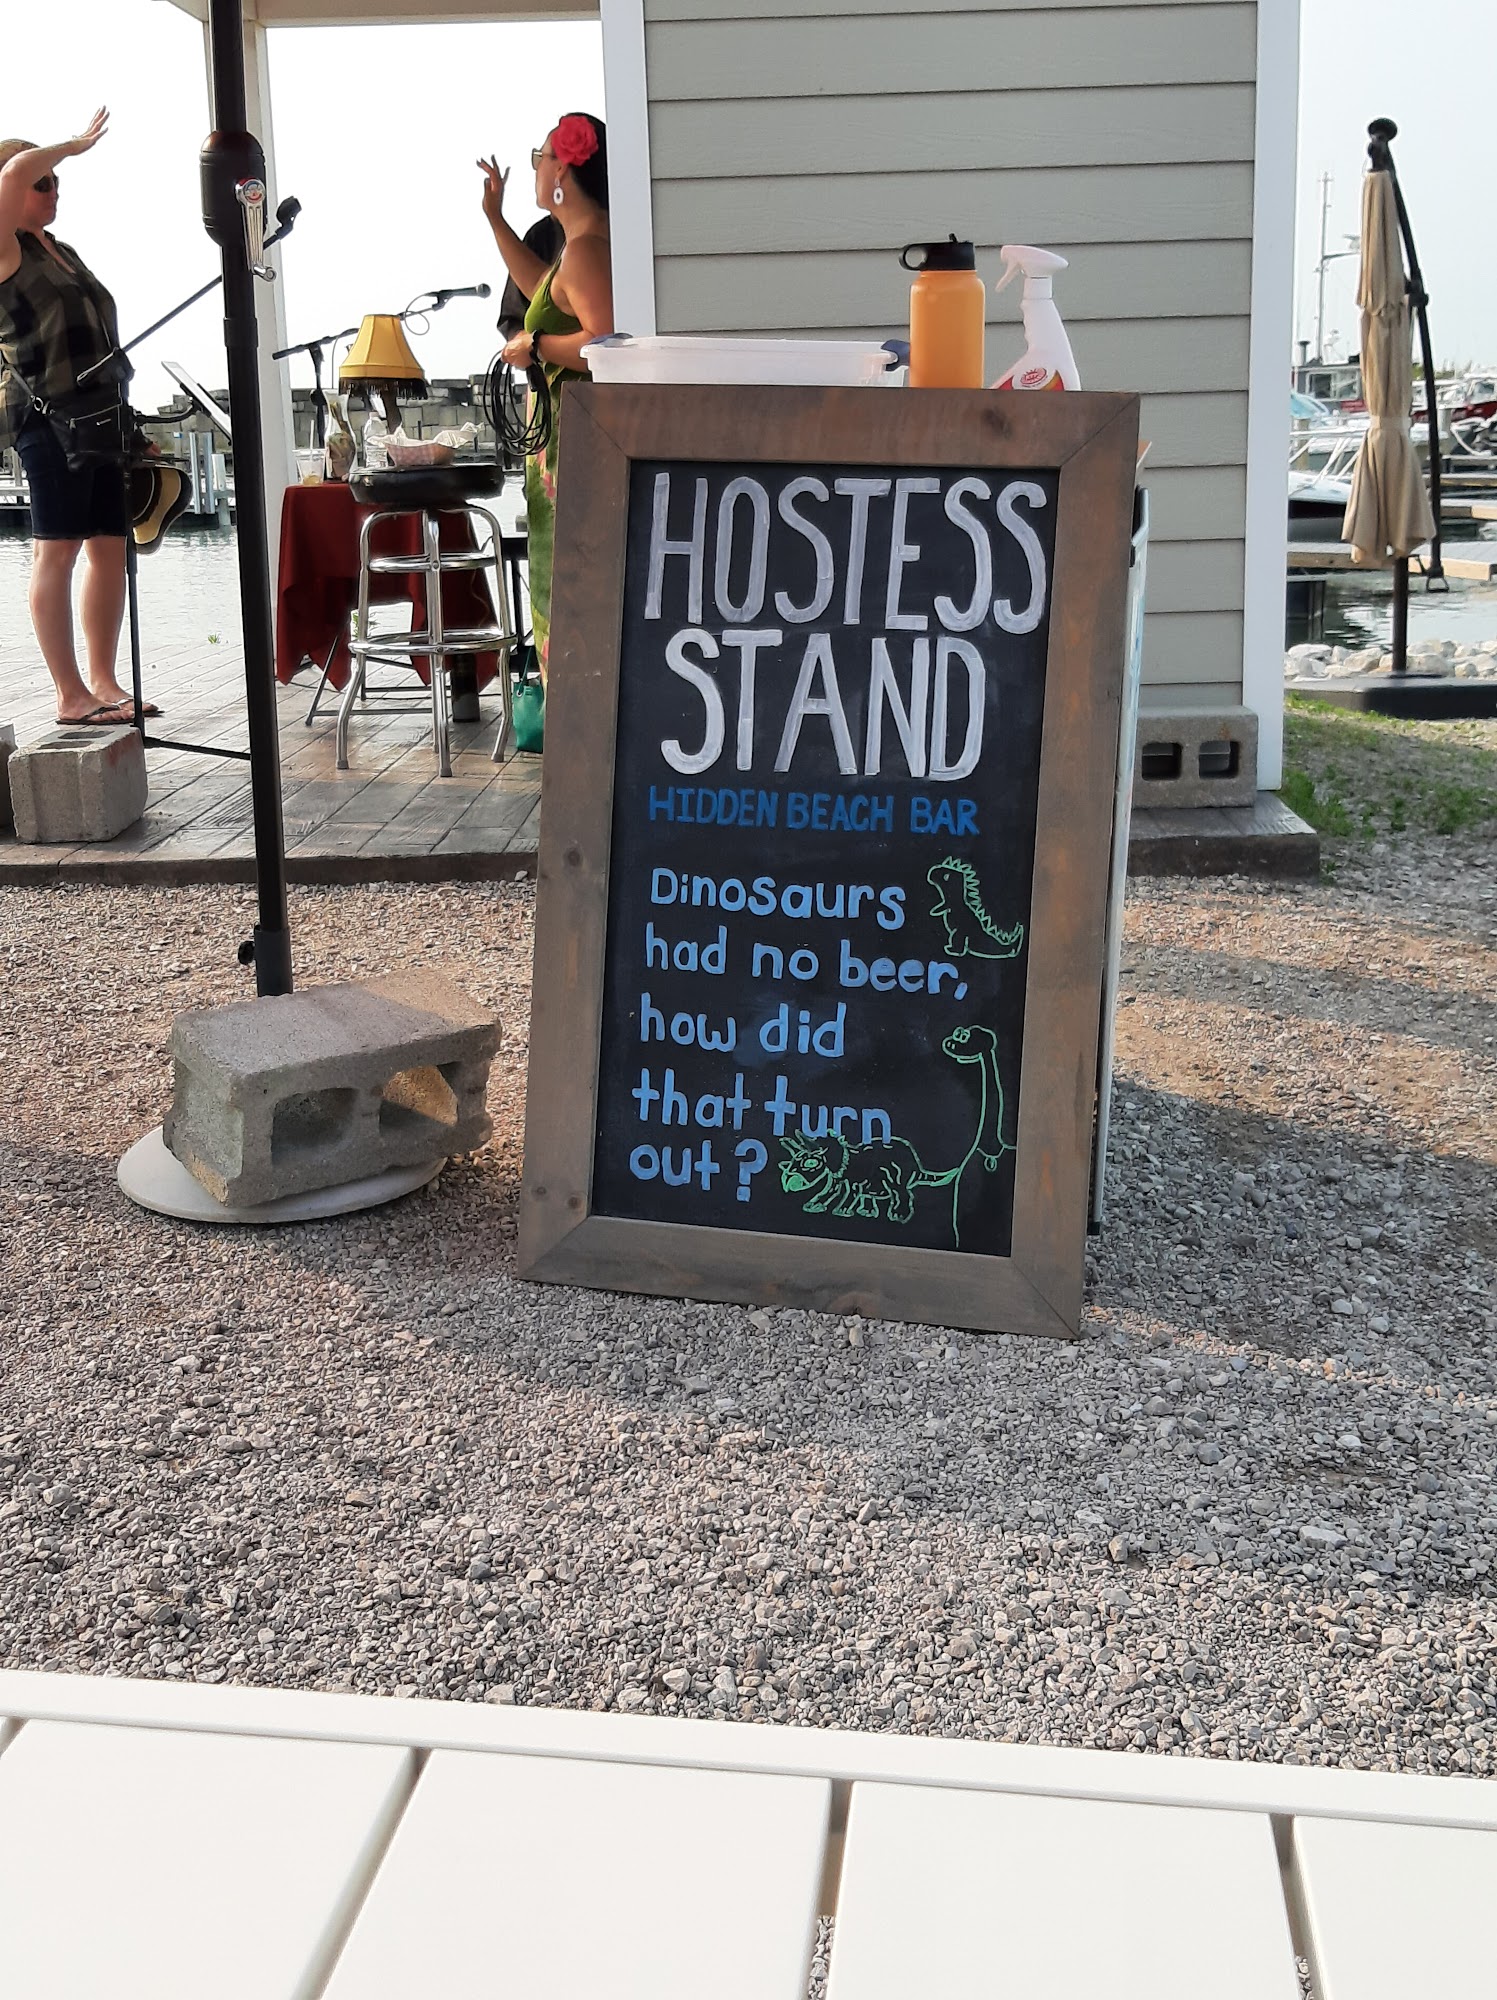 HOSTESS
STAND
HIDDEN BEACH BAR
Dinosaurs
had no beer,
how did
that turn
out?